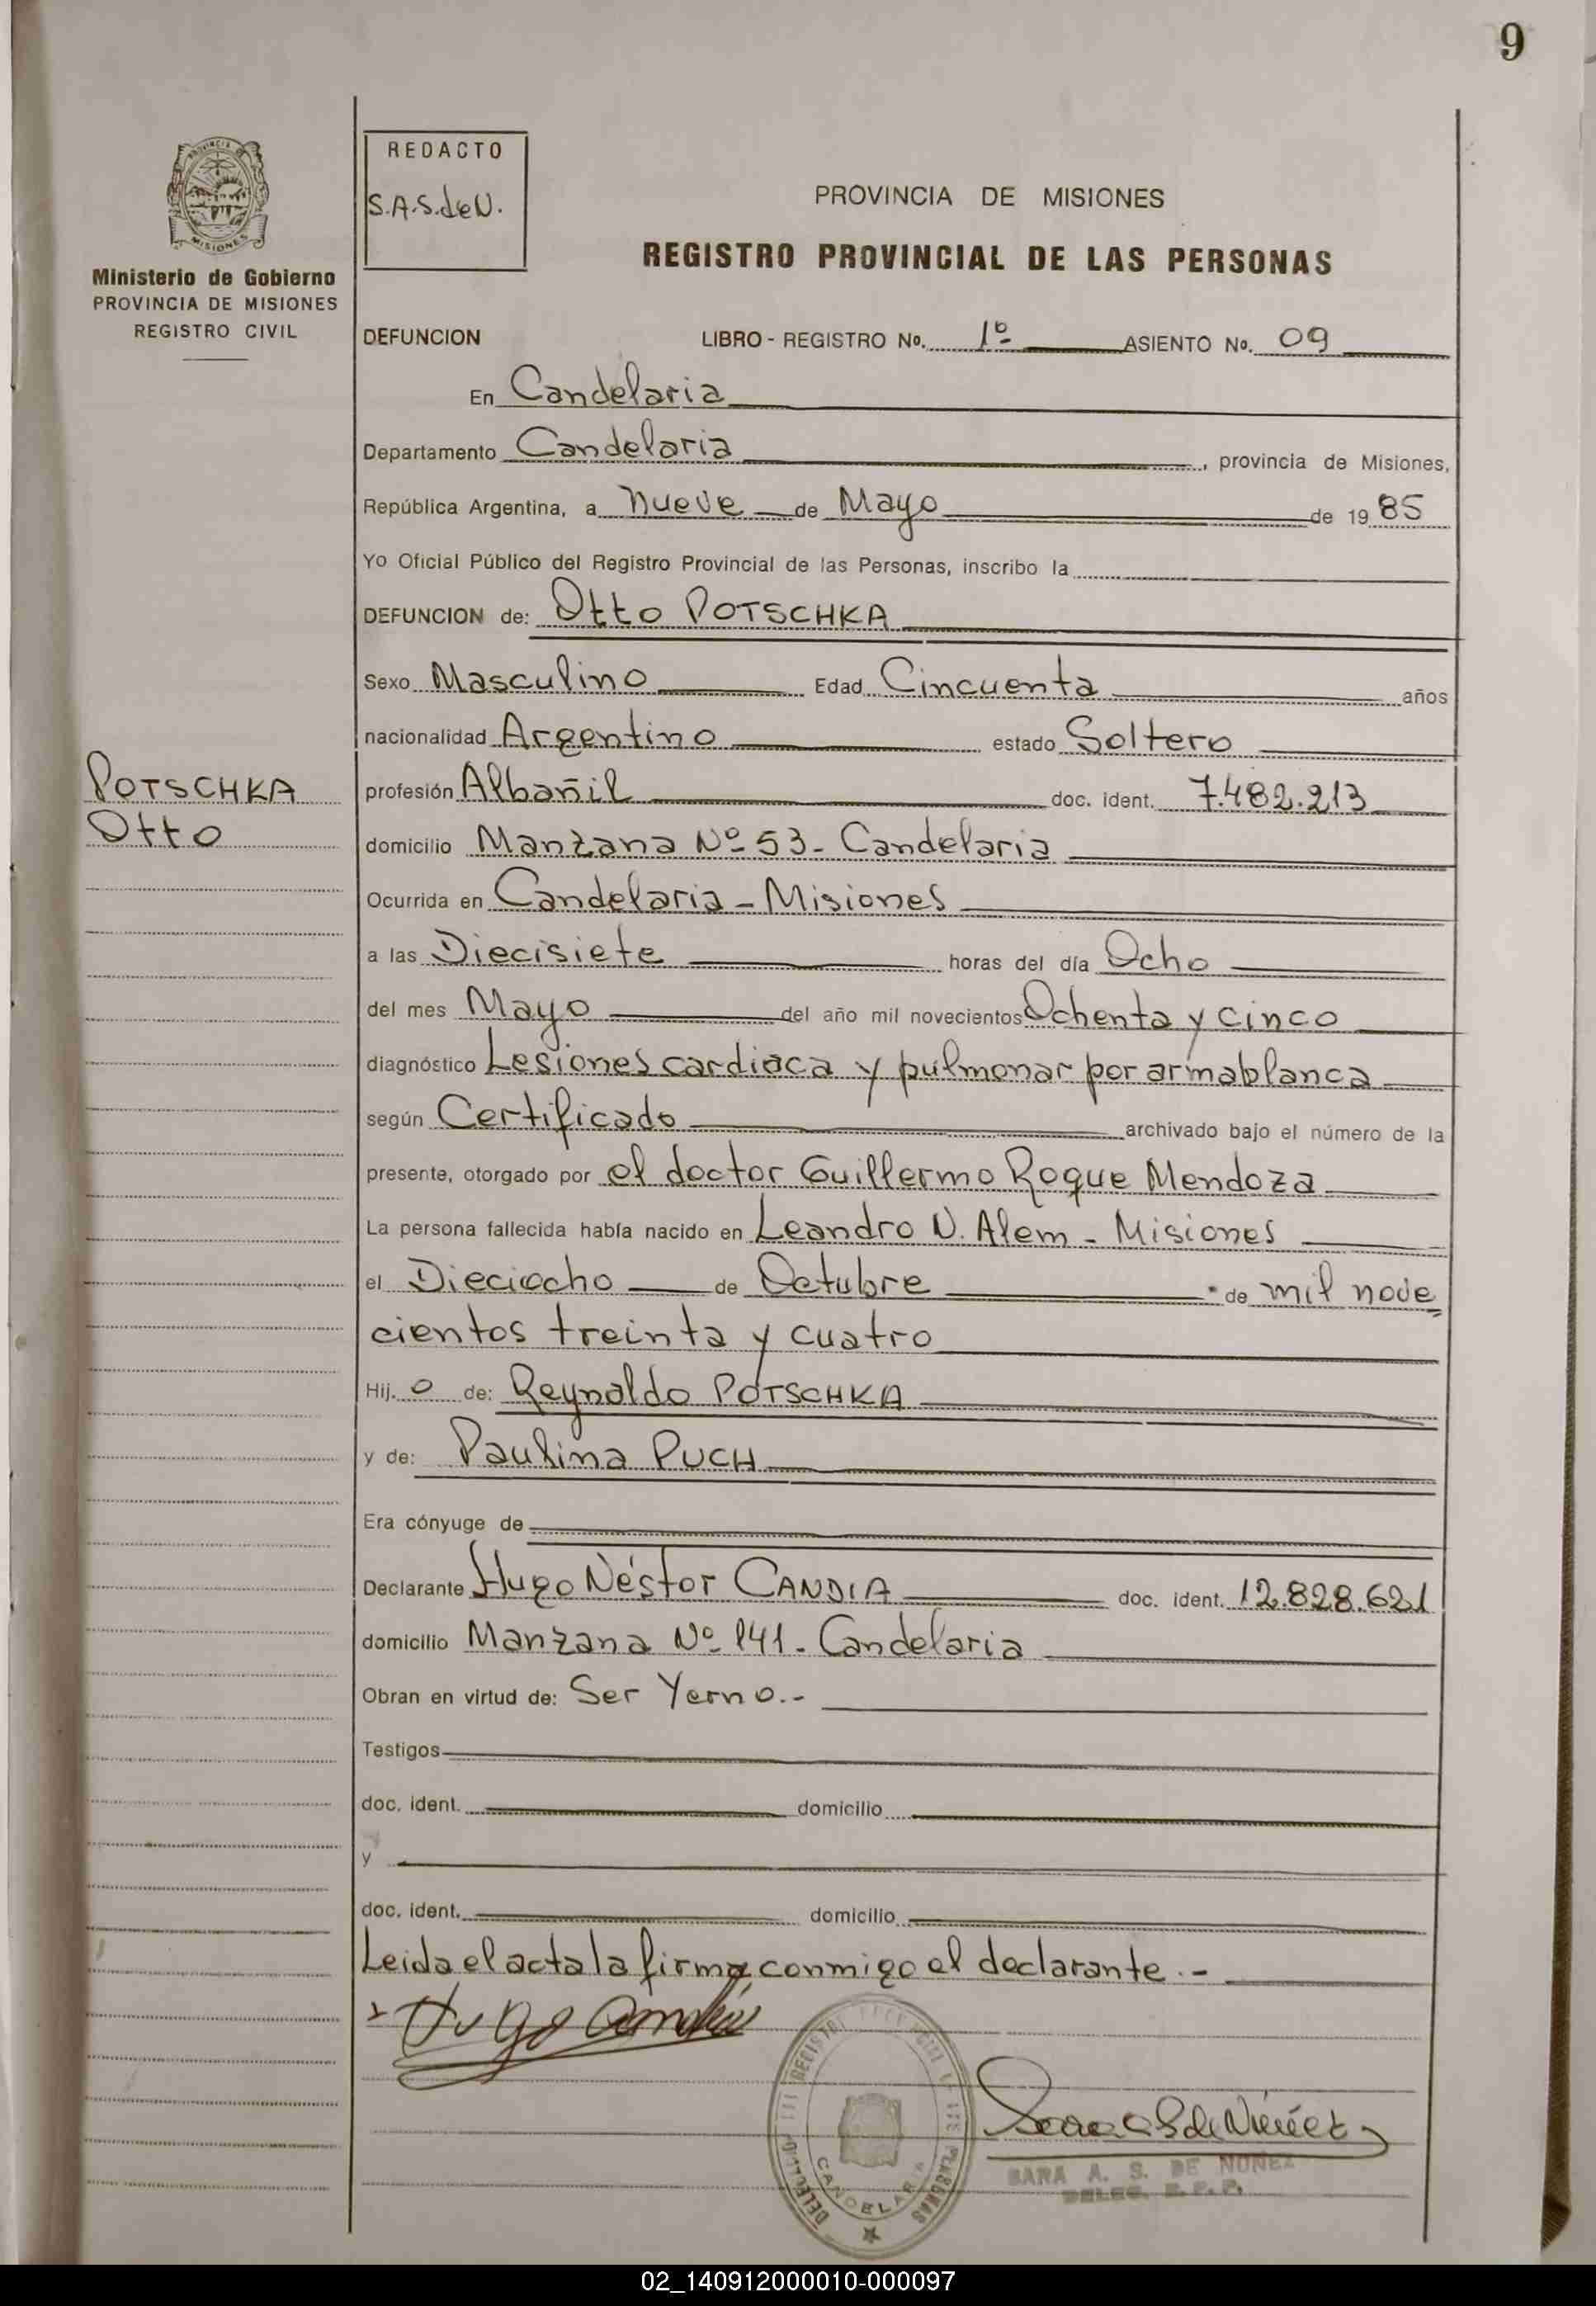 9
REDACTO
S.A.S.deN.
PROVINCIA DE MISIONES
REGISTRO PROVINCIAL DE LAS PERSONAS
MISIONES
Ministerio de Gobierno
PROVINCIA DE MISIONES
REGISTRO CIVIL
DEFUNCION LIBRO - REGISTRO No. 1º ASIENTO No. 09
En Candelaria
Departamento Candelaria, provincia de Misiones,
República Argentina, a nueve de Mayo de 1985
Yo Oficial Público del Registro Provincial de las Personas, inscribo la
DEFUNCION de: Otto POTSCHKA
Sexo Masculino Edad Cincuenta años
nacionalidad Argentino estado Soltero
POTSCHKA
Otto
profesión Albañil doc. ident. 7.482.213
domicilio Manzana Nº 53- Candelaria
Ocurrida en Candelaria - Misiones
a las Diecisiete horas del día Ocho
del mes Mayo del año mil novecientos Ochenta y cinco
diagnóstico Lesiones cardiaca y pulmonar por arma blanca
según Certificado archivado bajo el número de la
presente, otorgado por el doctor Guillermo Roque Mendoza
La persona fallecida había nacido en Leandro N. Alem - Misiones
el Dieciocho de Octubre de mil nove
cientos treinta y cuatro
Hij. o de: Reynaldo POTSCHKA
y de: Paulina PUCH
Era cónyuge de
Declarante Hugo Néstor CANDIA doc. ident. 12.828.621
domicilio Manzana Nº 141- Candelaria
Obran en virtud de: Ser Yerno.-
Testigos
doc. ident. domicilio
y
doc. ident. domicilio
Leida el acta la firma conmigo el declarante.-
Hugo Candia
CANDELARIA
SARA A. S. DE NUÑEZ
DELEG. R. P. P.
02_140912000010-000097